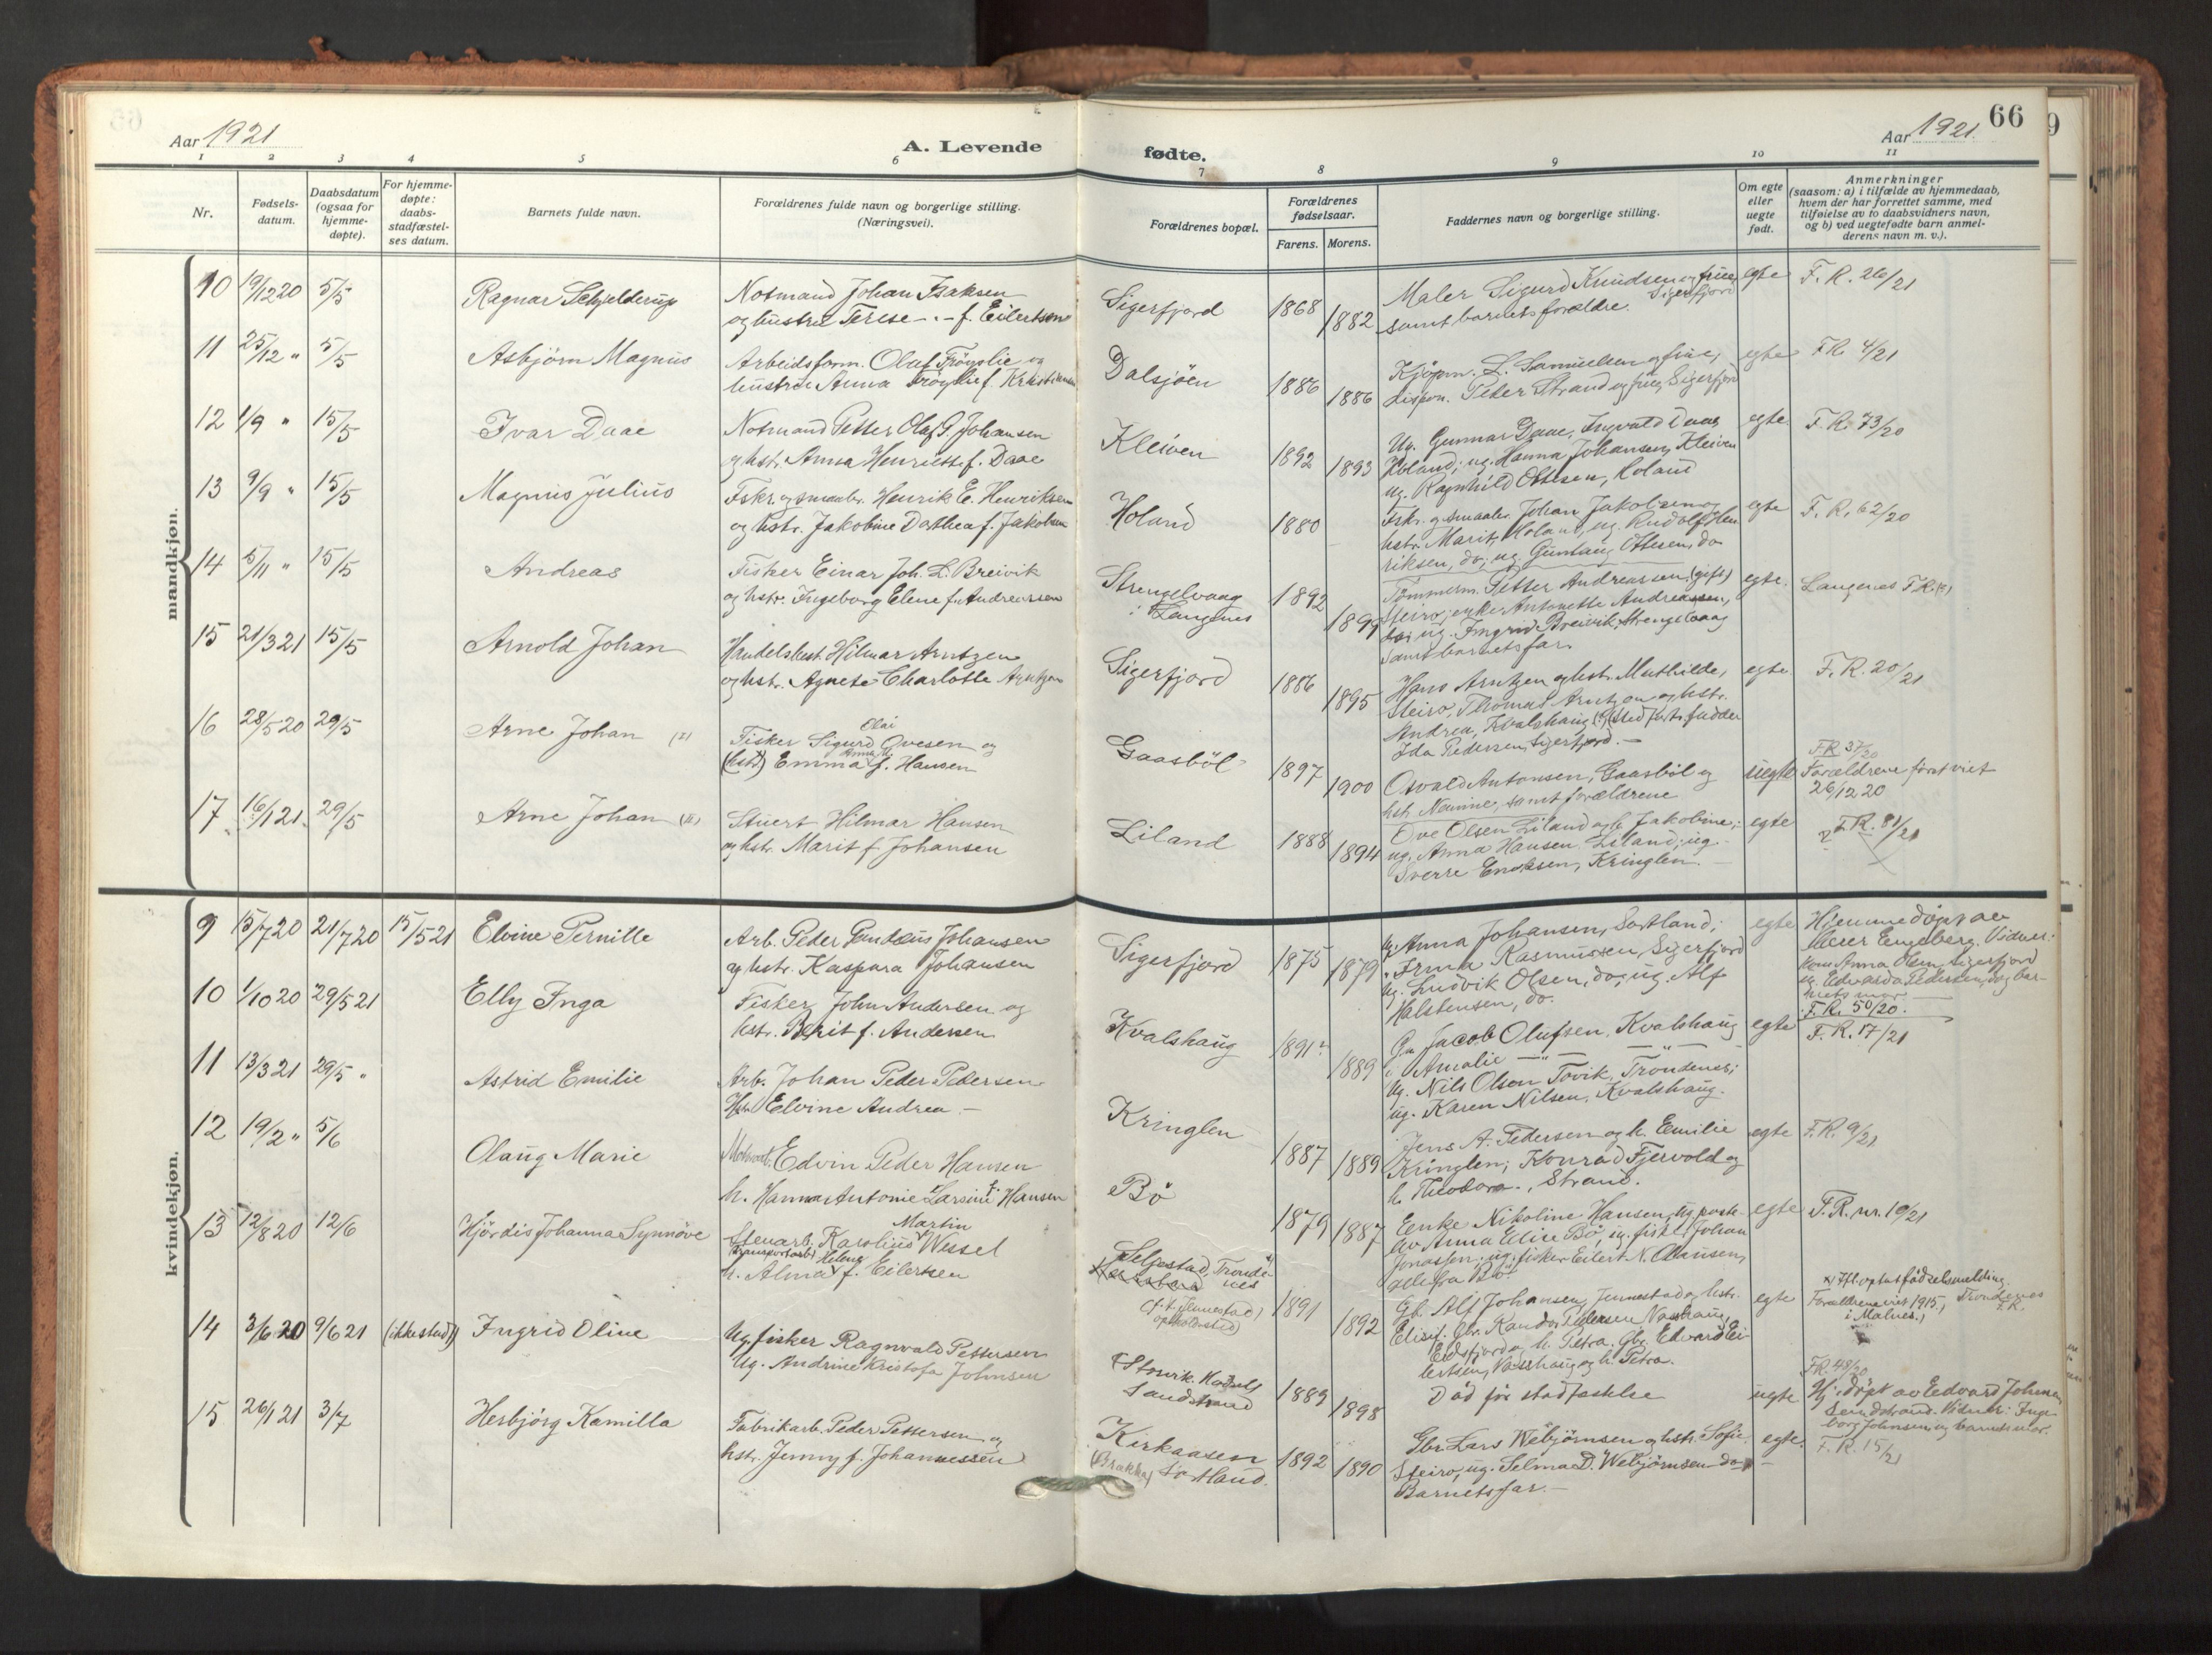 Aar 1921
A. Levende
fødte.
Aar 1921.
66
1 2 3 4 5 6 7 8 9 10 11
Nr.
Fødsels-
datum.
Daabsdatum
(ogsaa for
hjemme-
døpte).
For hjemme-
døpte:
daabs-
stadfæstel-
ses datum.
Barnets fulde navn.
Forældrenes fulde navn og borgerlige stilling.
(Næringsvei).
Forældrenes bopæl.
Forældrenes
fødselsaar.
Farens. Morens.
Faddernes navn og borgerlige stilling.
Om egte
eller
uegte
født.
Anmerkninger
(saasom: a) i tilfælde av hjemmedaab,
hvem der har forrettet samme, med
tilføielse av to daabsvidners navn,
og b) ved uegtefødte barn anmel-
derens navn m. v.).
mandkjøn.
10 19/12 20 5/5 Ragnar Schjelderup
Notmand Johan Isaksen
og hustru Terese -"- f. Eilertsen
Sigerfjord 1868 1882
Maler Sigurd Knudsen og frue, Sigerfjord
samt barnets forældre.
egte F. R. 26/21
11 25/12 " 5/5 Asbjørn Magnus
Arbeidsform. Oluf Frøyslie og
hustru Anna Frøyslie f. Kristiansen
Dalsjöen 1886 1886
Kjöpm. L. Samuelsen og frue,
dispon. Peder Strand og frue, Sigerfjord
egte F.R. 4/21
12 1/9 " 15/5 Ivar Daae
Notmand Petter Olaf P. Johansen
og hstr. Anna Henriette f. Daae
Kleiven 1892 1893
Ug. Gunnar Daae, Ingvald Daae
Holand; ug. Hanna Johansen, Kleiven
ug. Ragnhild Ottesen, Holand
egte. F. R. 73/20
13 9/9 " 15/5 Magnus Julius
Fskr. og smaabr. Henrik E. Henriksen
og hstr. Jakobine Dorthea f. Jakobsen
Holand 1880
Fskr. og smaabr. Johan Jakobsen og
hstr. Marit, Holand, ug. Rudolf Hen
riksen, do; ug. Gunlaug Ottesen, do
egte F. R. 62/20
14 5/11 " 15/5 Andreas
Fisker Einar Joh. L. Breivik
og hstr. Ingeborg Elene f. Andreassen
Strengelvaag
i Langenes 1892 1899
Tömmerm. Petter Andreassen (gift)
Steiro; enke Antonette Andreassen,
do; ug. Ingrid Breivik, Strengelvaag
samt barnets far.
egte. Langenes F. R.
15 21/3 21 15/5 Arnold Johan
Handelsbest. Hilmar Arntzen
og hstr. Agnete Charlotte Arntzen
Sigerfjord 1886 1895
Hans Arntzen og hstr. Mathilde,
Steiro, Thomas Arntzen og hstr.
Andrea, Kvalshaug (?) stedfortr. fadder
Ida Pedersen, Sigerfjord. -
egte F. R. 20/21
16 28/5 20 29/5 Arne Johan (I)
Olai
Fisker Sigurd Ovesen og
Anna M.
(hstr) Emma f. Hansen
Gaasböl 1897 1900
Osvald Antonsen, Gaasböl og
hstr. Nanine, samt forældrene
uegte
F.R 37/20
Forældrene först viet
26/12 20
17 16/1 21 29/5 Arne Johan (II)
Stuert Hilmar Hansen
og hstr. Marit f. Johansen
Liland 1888 1894
Ove Olsen Liland og h. Jakobine;
ug. Anna Hansen Liland; ug.
Sverre Enoksen, Kringlen -
egte F. R. 81/21
kvindekjøn.
9 15/7 20 21/7 20 15/5 21 Elvine Pernille
Arb. Peder Johansen
og hstr. Kaspara Johansen
Sigerfjord 1875 1879
Ug. Anna Johansen, Sortland;
" Irma Rasmussen, Sigerfjord
Ug. Ludvik Olsen, do; ug. Alf
Halstensen, do.
egte Hjemmedöpt av
Engeberg. Vidner:
Anna Olsen, Sigerfjord
ug. Edvarda Pedersen, do, og bar-
nets mor -
F. R. 50/20.
10 1/10 20 29/5 21 Elly Inga
Fisker John Andersen og
hstr. Berit f. Andersen
Kvalshaug 1891 1889
Ga Jacob Olufsen, Kvalshaug
" Amalie -"- -"-
Ug. Nils Olsen Tovik, Trondenes;
ug. Karen Nilsen, Kvalshaug.
egte F. R. 17/21
11 13/3 21 29/5 " Astrid Emilie
Arb. Johan Peder Pedersen
Hstr. Elvine Andrea -
Kringlen 1887 1889
Jens A. Pedersen og h. Emilie
Kringlen; Konrad Fjervold og
h. Theodora, Strand.
egte F. R. 9/21
12 19/2 " 5/6 Olaug Marie
Edvin Peder Hansen
h. Hanna Antonie Larsine f. Hansen
Bö 1879 1887
Enke Nikoline Hansen,
av Anna Elise Bö, ug. fisker Johan
Jonassen, ug. fisker Eilert N. Olausen,
alle fra Bö.
egte F. R. nr. 10/21
13 12/8 20 12/6 Hjördis Johanna Synnöve
Martin
Stenarb. Karolius Wessel
(transportarb) Helena
h. Alma f. Eilertsen
Selfestad, Tronde-
nes
(f.t. Jennestad)
opholdssted) 1891 1892
Gb. Alf Johansen, Jennestad og hstr.
Elisif. Gbr. Randor Pedersen Vasshaug,
Eidsfjord og h. Petra. Gbr. Edvard Ei-
lertsen, Vasshaug og h. Petra.
egte
x) Ifl. optat fødselsmelding.
Forældrene viet 1915, Trondenes
i Malnes. F.R.
14 3/6 20 9/6 21 (ikke stadf) Ingrid Oline
Ug. fisker Ragnvald Pettersen
Ug. Andrine Kristofa Johnsen
Sandstrand 1889 1898
Död för stadfæstelse
uegte
F.R. 48/20
Hj. döpt av Edvard Johnsen
Sandstrand. Vidner: Inge-
borg Johnsen og barnets mor.
15 26/1 21 3/7 Herbjörg Kamilla
Fabrikarb. Peder Pettersen og
hstr. Jenny f. Johannessen
Kirkaasen
(Brakka) Sortland. 1892 1890
Gbr. Lars Webjörnsen og hstr. Sofie
Steiro, ug. Selma D. Webjörnsen do,
Barnets far. -
egte. F. R. 15/21